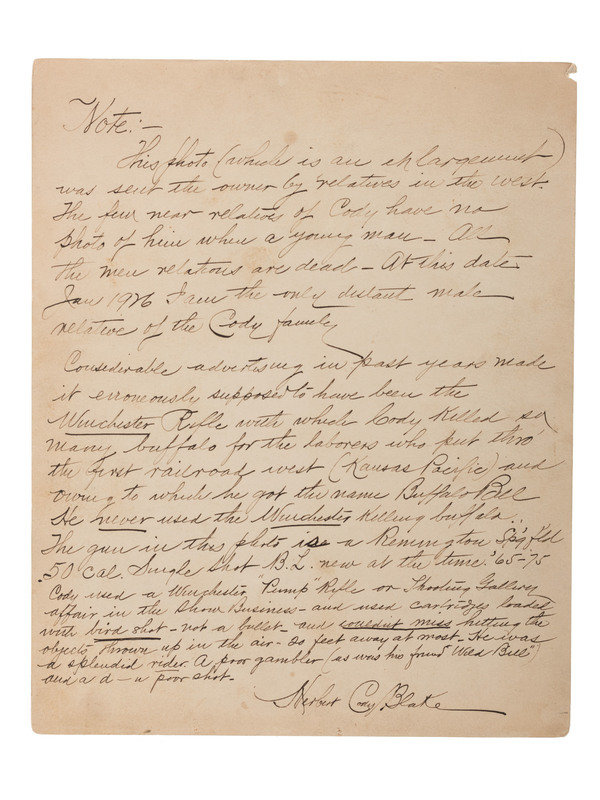 Note:—
This photo (which is an enlargement)
was sent the owner by relatives in the west.
The few near relatives of Cody have no
photo of him when a young man — All
the men relations are dead — At this date
Jan 1926 I am the only distant male
relative of the Cody family
Considerable advertising in past years made
it erroneously supposed to have been the
Winchester Rifle with which Cody killed so
many buffalo for the laborers who put thro'
the first railroad west (Kansas Pacific) and
owing to which he got the name Buffalo Bill
He never used the Winchester killing buffalo...
The gun in this photo is a Remington Spg'f'ld
.50 Cal. Single Shot B.L. new at the time. '65-75
Cody used a Winchester "Pump" Rifle or Shooting Gallery
affair in the Show Business - and used cartridges loaded
with bird shot - not a bullet - and couldn't miss hitting the
objects thrown up in the air - 20 feet away at most. He was
a splendid rider. A poor gambler (as was his friend "Wild Bill")
and a d— poor shot.
Herbert Cody Blake